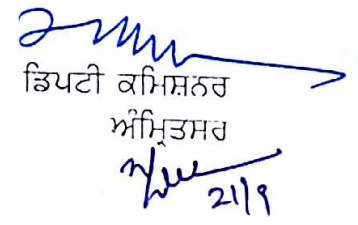 ਡਿਪਟੀ ਕਮਿਸ਼ਨਰ
ਅੰਮ੍ਰਿਤਸਰ
21/9